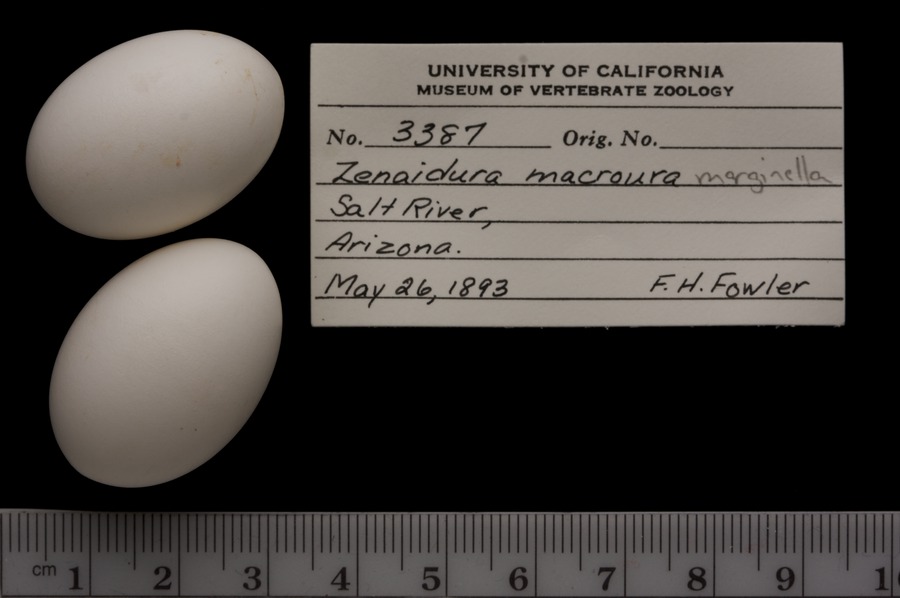 UNIVERSITY OF CALIFORNIA
MUSEUM OF VERTEBRATE ZOOLOGY
No. 3387 Orig. No.
Zenaidura macroura marginella
Salt River,
Arizona.
May 26, 1893 F. H. Fowler
cm 1 2 3 4 5 6 7 8 9 1